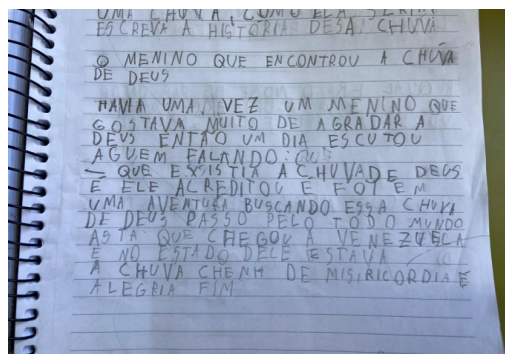 UMA CHUVA, COMO ELA SERIA
ESCREVA A HISTORIA DESA CHUVA
O MENINO QUE ENCONTROU A CHUVA
DE DEUS
HAVIA UMA VEZ UM MENINO QUE
GOSTAVA MUITO DE AGRADAR A
DEUS ENTÃO UM DIA ESCUTOU
AGUEM FALANDO:
— QUE EXSISTIA A CHUVA DE DEUS
E ELE ACREDITOU E FOI EM
UMA AVENTURA BUSCANDO ESSA CHUVA
DE DEUS PASSO PELO TODO MUNDO
ASTA QUE CHEGOU A VENEZUELA
E NO ESTADO DELE ESTAVA
A CHUVA CHENH DE MISIRICORDIA E
ALEGRIA FIM